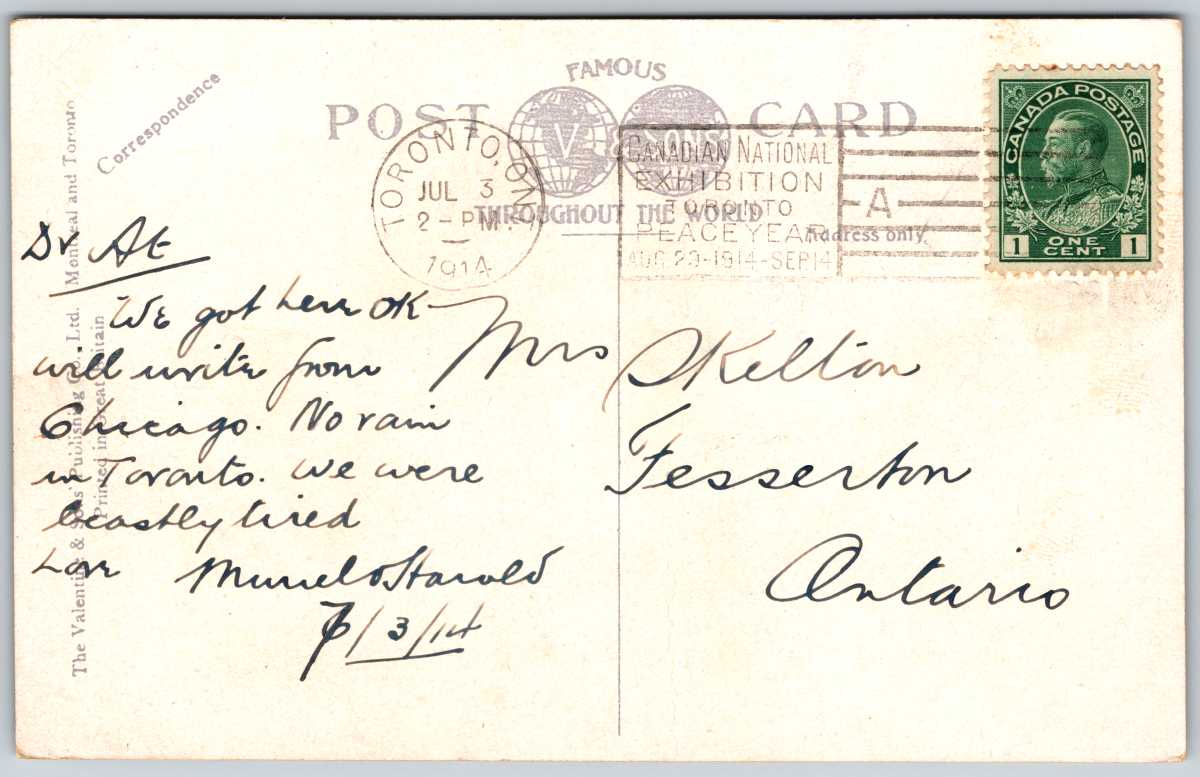 FAMOUS
POST CARD
V & SONS
THROUGHOUT THE WORLD
Correspondence
Address only.
The Valentine & Sons' Publishing Co., Ltd. Montreal and Toronto
Printed in Great Britain
TORONTO, ONT.
JUL 3
2 - PM.
1914
CANADIAN NATIONAL
EXHIBITION
TORONTO
PEACE YEAR
AUG. 29-1914-SEP.14
A
CANADA POSTAGE
1 ONE CENT 1
Dr At
We got here OK
will write from
Chicago. No rain
in Toronto. We were
beastly tired
Love Muriel & Harold
7/3/14
Mrs Skelton
Fesserton
Ontario